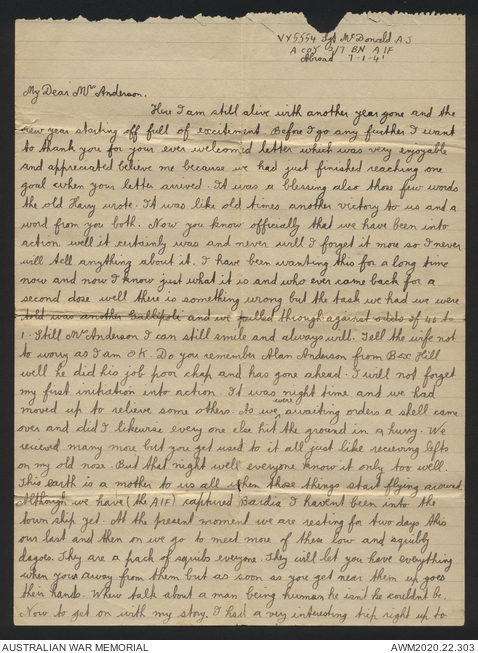 VX5554 Sgt McDonald A.J
A COY 2/7 BN AIF
Abroad 7-1-41
My Dear Mrs Anderson.
Here I am still alive with another year gone and the
new year starting off full of excitement. Before I go any further I want
to thank you for your ever welcomed letter which was very enjoyable
and appreciated believe me because we had just finished reaching one
goal when your letter arrived. It was a blessing also those few words
the old Harry wrote. It was like old times another victory to us and a
word from you both. Now you know officially that we have been into
action well it certainly was and never will I forget it more so I never
will tell anything about it. I have been wanting this for a long time
now and now I know just what it is and who ever came back for a
second dose well there is something wrong but the task we had we were
told was another Gallipoli and we pulled through against odds of 40 to
1. Still Mrs Anderson I can still smile and always will. Tell the wife not
to worry as I am OK. Do you remember Alan Anderson from Box Hill
well he did his job poor chap and has gone ahead. I will not forget
my first initiation into action. It was night time and we had
moved up to relieve some others. As we were awaiting orders a shell came
over and did I likewise every one else hit the ground in a hurry. We
recieved many more but you get used to it all just like recieving lefts
on my old nose. But that night well everyone know it only too well.
This earth is a mother to us all when those things start flying around.
Although we have (the AIF) captured Bardia I havent been into the
town ship yet. At the present moment we are resting for two days this
our last and then on we go to meet more of these low and squibly
dagoes. They are a pack of squibs everyone. They will let you have everything
when your away from them but as soon as you get near them up goes
their hands. When talk about a man being human he isn't he couldnt be.
Now to get on with my story. I had a very interesting trip right up to
AUSTRALIAN WAR MEMORIAL
AWM2020.22.303